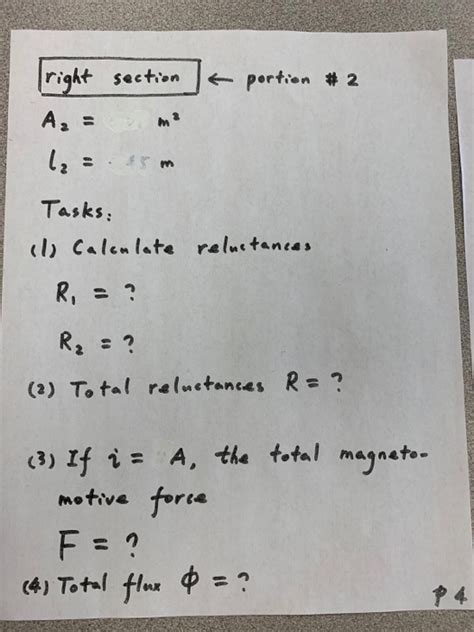 right section ← portion # 2
A₂ = m²
l₂ = m
Tasks:
(1) Calculate reluctances
R₁ = ?
R₂ = ?
(2) Total reluctances R = ?
(3) If i = A, the total magneto-
motive force
F = ?
(4) Total flux Φ = ?
P4